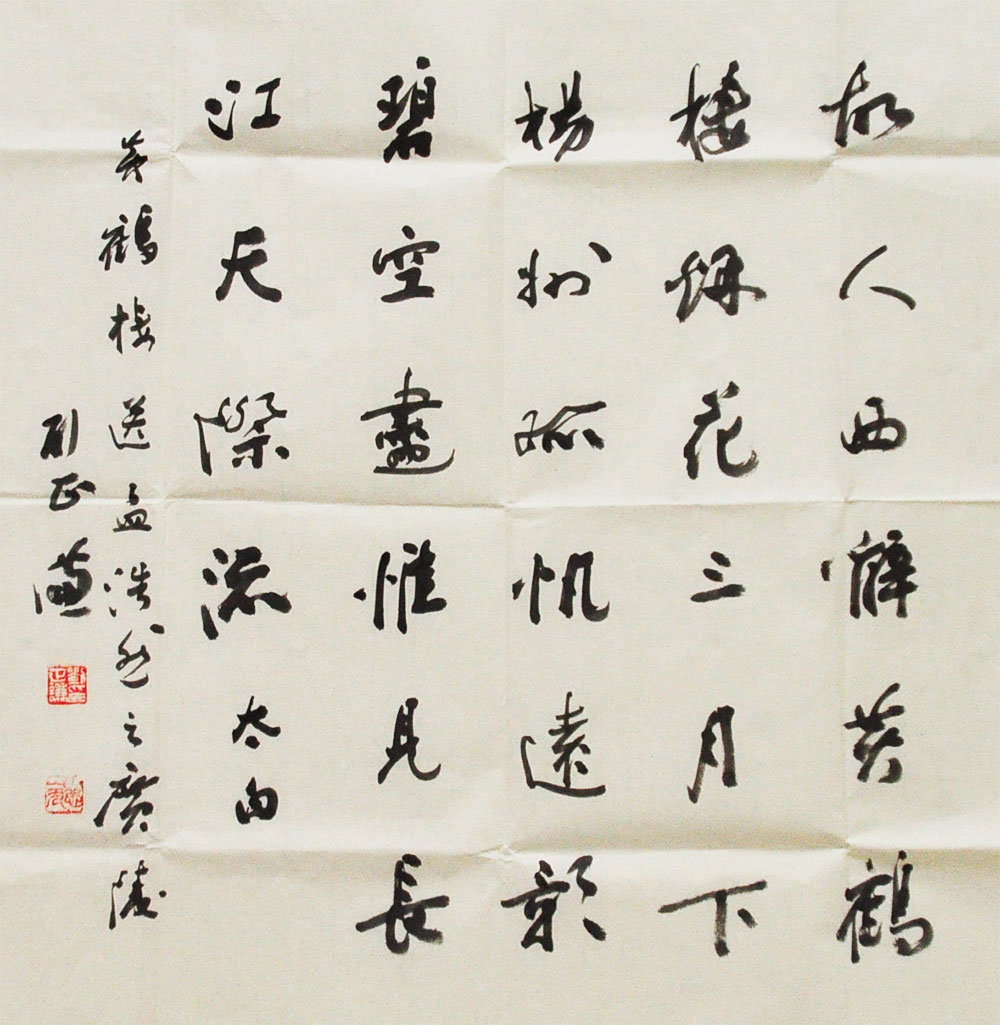 故人西辭黃鶴
樓烟花三月下
楊州孤帆遠影
碧空盡惟見長
江天際流 太白
黃鶴樓送孟浩然之廣陵
刘正